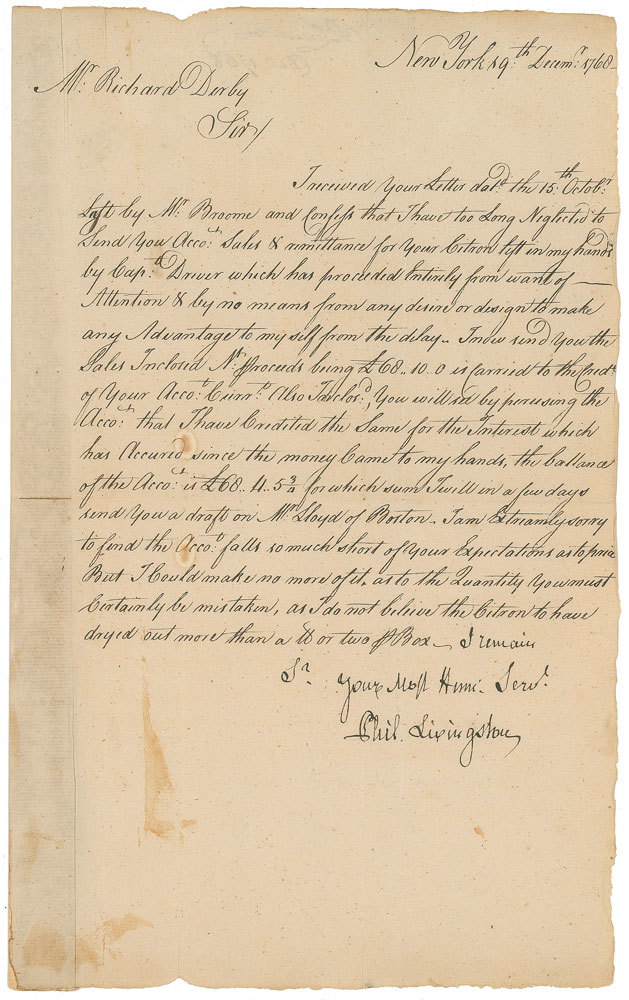 New York 19.th Decem.r 1768
Mr. Richard Derby
Sir/
I received Your Letter dat.d the 15.th Octob.r
Left by Mr. Broome and Confess that I have too Long Neglected to
Send You Acco.t Sales & remittance for Your Citron left in my hands
by Cap.t Driver which has proceeded Entirely from want of
Attention & by no means from any desire or design to make
any Advantage to my self from the delay.. I now send You the
Sales Inclosed N.t proceeds being £68..10.0 is carried to the Cred.t
of Your Acco.t Curr.t Also Inclos.d, You will see by peruseing the
Acco.t that I have Credited the Same for the Interest which
has Accured since the money Came to my hands, the ballance
of the Acco.t is £68..4..5 3/4 for which sum I will in a few days
send You a draft on Mr. Lloyd of Boston. I am Extreamly sorry
to find the Acco.t falls so much short of Your Expectations as to price
But I Could make no more of it, as to the Quantity You must
Certainly be mistaken, as I do not beleive the Citron to have
dryed out more than a lb or two ⅌ Box — I remain
S.r Your Most Hum.e Serv.t
Phil. Livingston